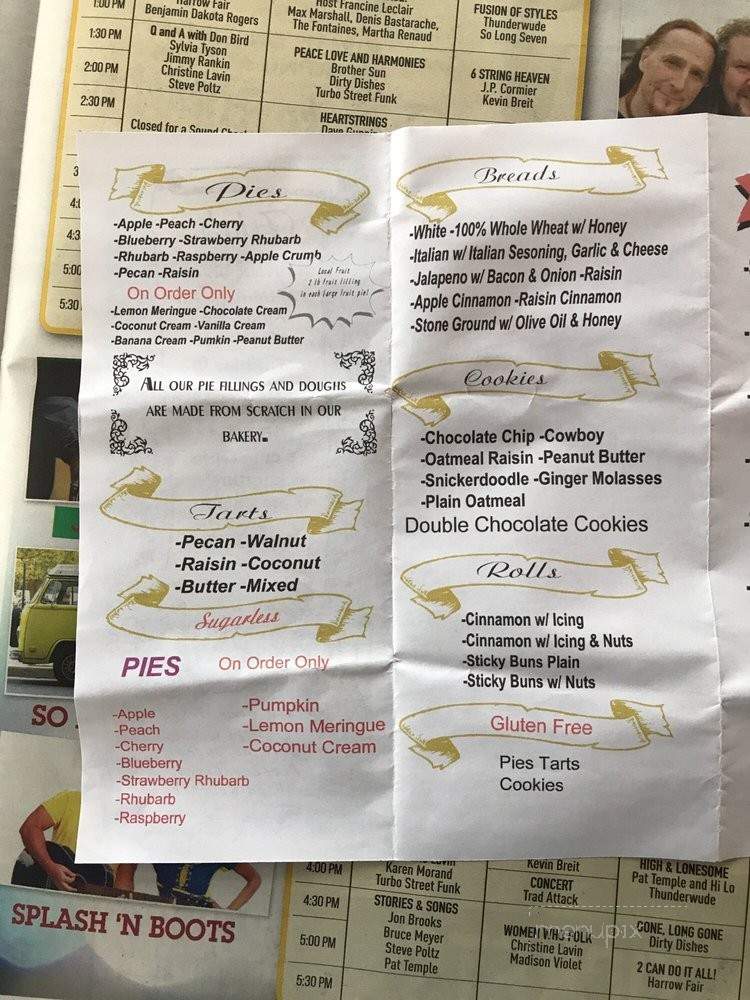 1:00 PM
Harrow Fair
Benjamin Dakota Rogers
Host Francine Leclair
Max Marshall, Denis Bastarache,
The Fontaines, Martha Renaud
FUSION OF STYLES
Thunderwude
So Long Seven
1:30 PM
Q and A with Don Bird
Sylvia Tyson
Jimmy Rankin
Christine Lavin
Steve Poltz
PEACE LOVE AND HARMONIES
Brother Sun
Dirty Dishes
Turbo Street Funk
2:00 PM
6 STRING HEAVEN
J.P. Cormier
Kevin Breit
2:30 PM
HEARTSTRINGS
Closed for a Sound
5:30
Pies
-Apple -Peach -Cherry
-Blueberry -Strawberry Rhubarb
-Rhubarb -Raspberry -Apple Crumb
-Pecan -Raisin
Local Fruit
2 lb fruit filling
in each large fruit pie!
On Order Only
-Lemon Meringue -Chocolate Cream
-Coconut Cream -Vanilla Cream
-Banana Cream -Pumkin -Peanut Butter
ALL OUR PIE FILLINGS AND DOUGHS
ARE MADE FROM SCRATCH IN OUR
BAKERY.
Tarts
-Pecan -Walnut
-Raisin -Coconut
-Butter -Mixed
Sugarless
PIES On Order Only
-Apple
-Peach
-Cherry
-Blueberry
-Strawberry Rhubarb
-Rhubarb
-Raspberry
-Pumpkin
-Lemon Meringue
-Coconut Cream
Breads
-White -100% Whole Wheat w/ Honey
-Italian w/ Italian Sesoning, Garlic & Cheese
-Jalapeno w/ Bacon & Onion -Raisin
-Apple Cinnamon -Raisin Cinnamon
-Stone Ground w/ Olive Oil & Honey
Cookies
-Chocolate Chip -Cowboy
-Oatmeal Raisin -Peanut Butter
-Snickerdoodle -Ginger Molasses
-Plain Oatmeal
Double Chocolate Cookies
Rolls
-Cinnamon w/ Icing
-Cinnamon w/ Icing & Nuts
-Sticky Buns Plain
-Sticky Buns w/ Nuts
Gluten Free
Pies Tarts
Cookies
SO
SPLASH 'N BOOTS
4:00 PM
Karen Morand
Turbo Street Funk
Kevin Breit
HIGH & LONESOME
Pat Temple and Hi Lo
Thunderwude
4:30 PM
STORIES & SONGS
Jon Brooks
Bruce Meyer
Steve Poltz
Pat Temple
CONCERT
Trad Attack
5:00 PM
WOMEN WHO FOLK
Christine Lavin
Madison Violet
GONE, LONG GONE
Dirty Dishes
5:30 PM
2 CAN DO IT ALL!
Harrow Fair
menupix